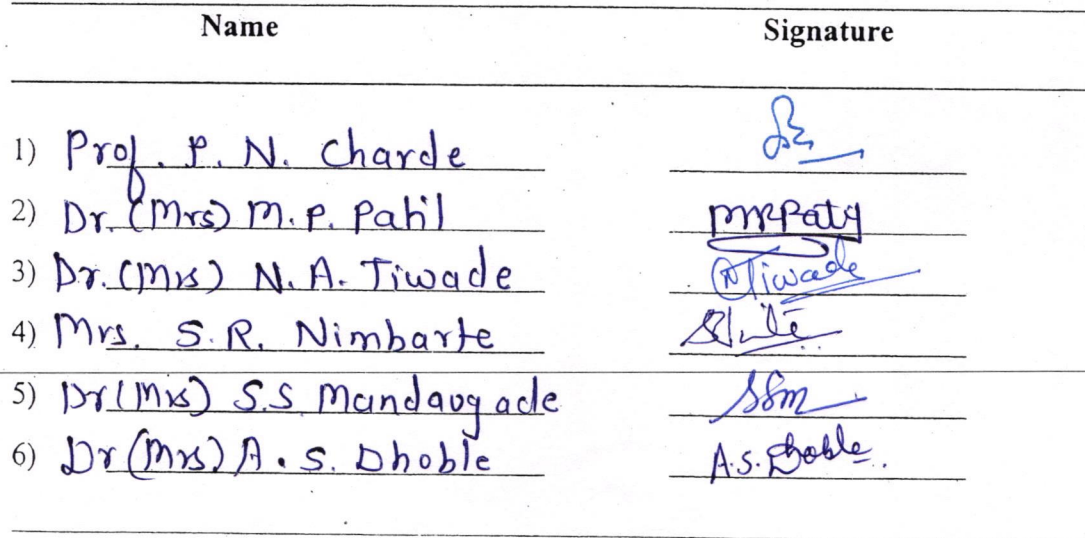 Name Signature
1) Prof. P. N. Charde
2) Dr. (Mrs) M. P. Patil
3) Dr. (Mrs) N. A. Tiwade Tiwade
4) Mrs. S. R. Nimbarte
5) Dr (Mrs) S.S. Mandavgade SSm
6) Dr (Mrs) A. S. Dhoble A.S. Dhoble.